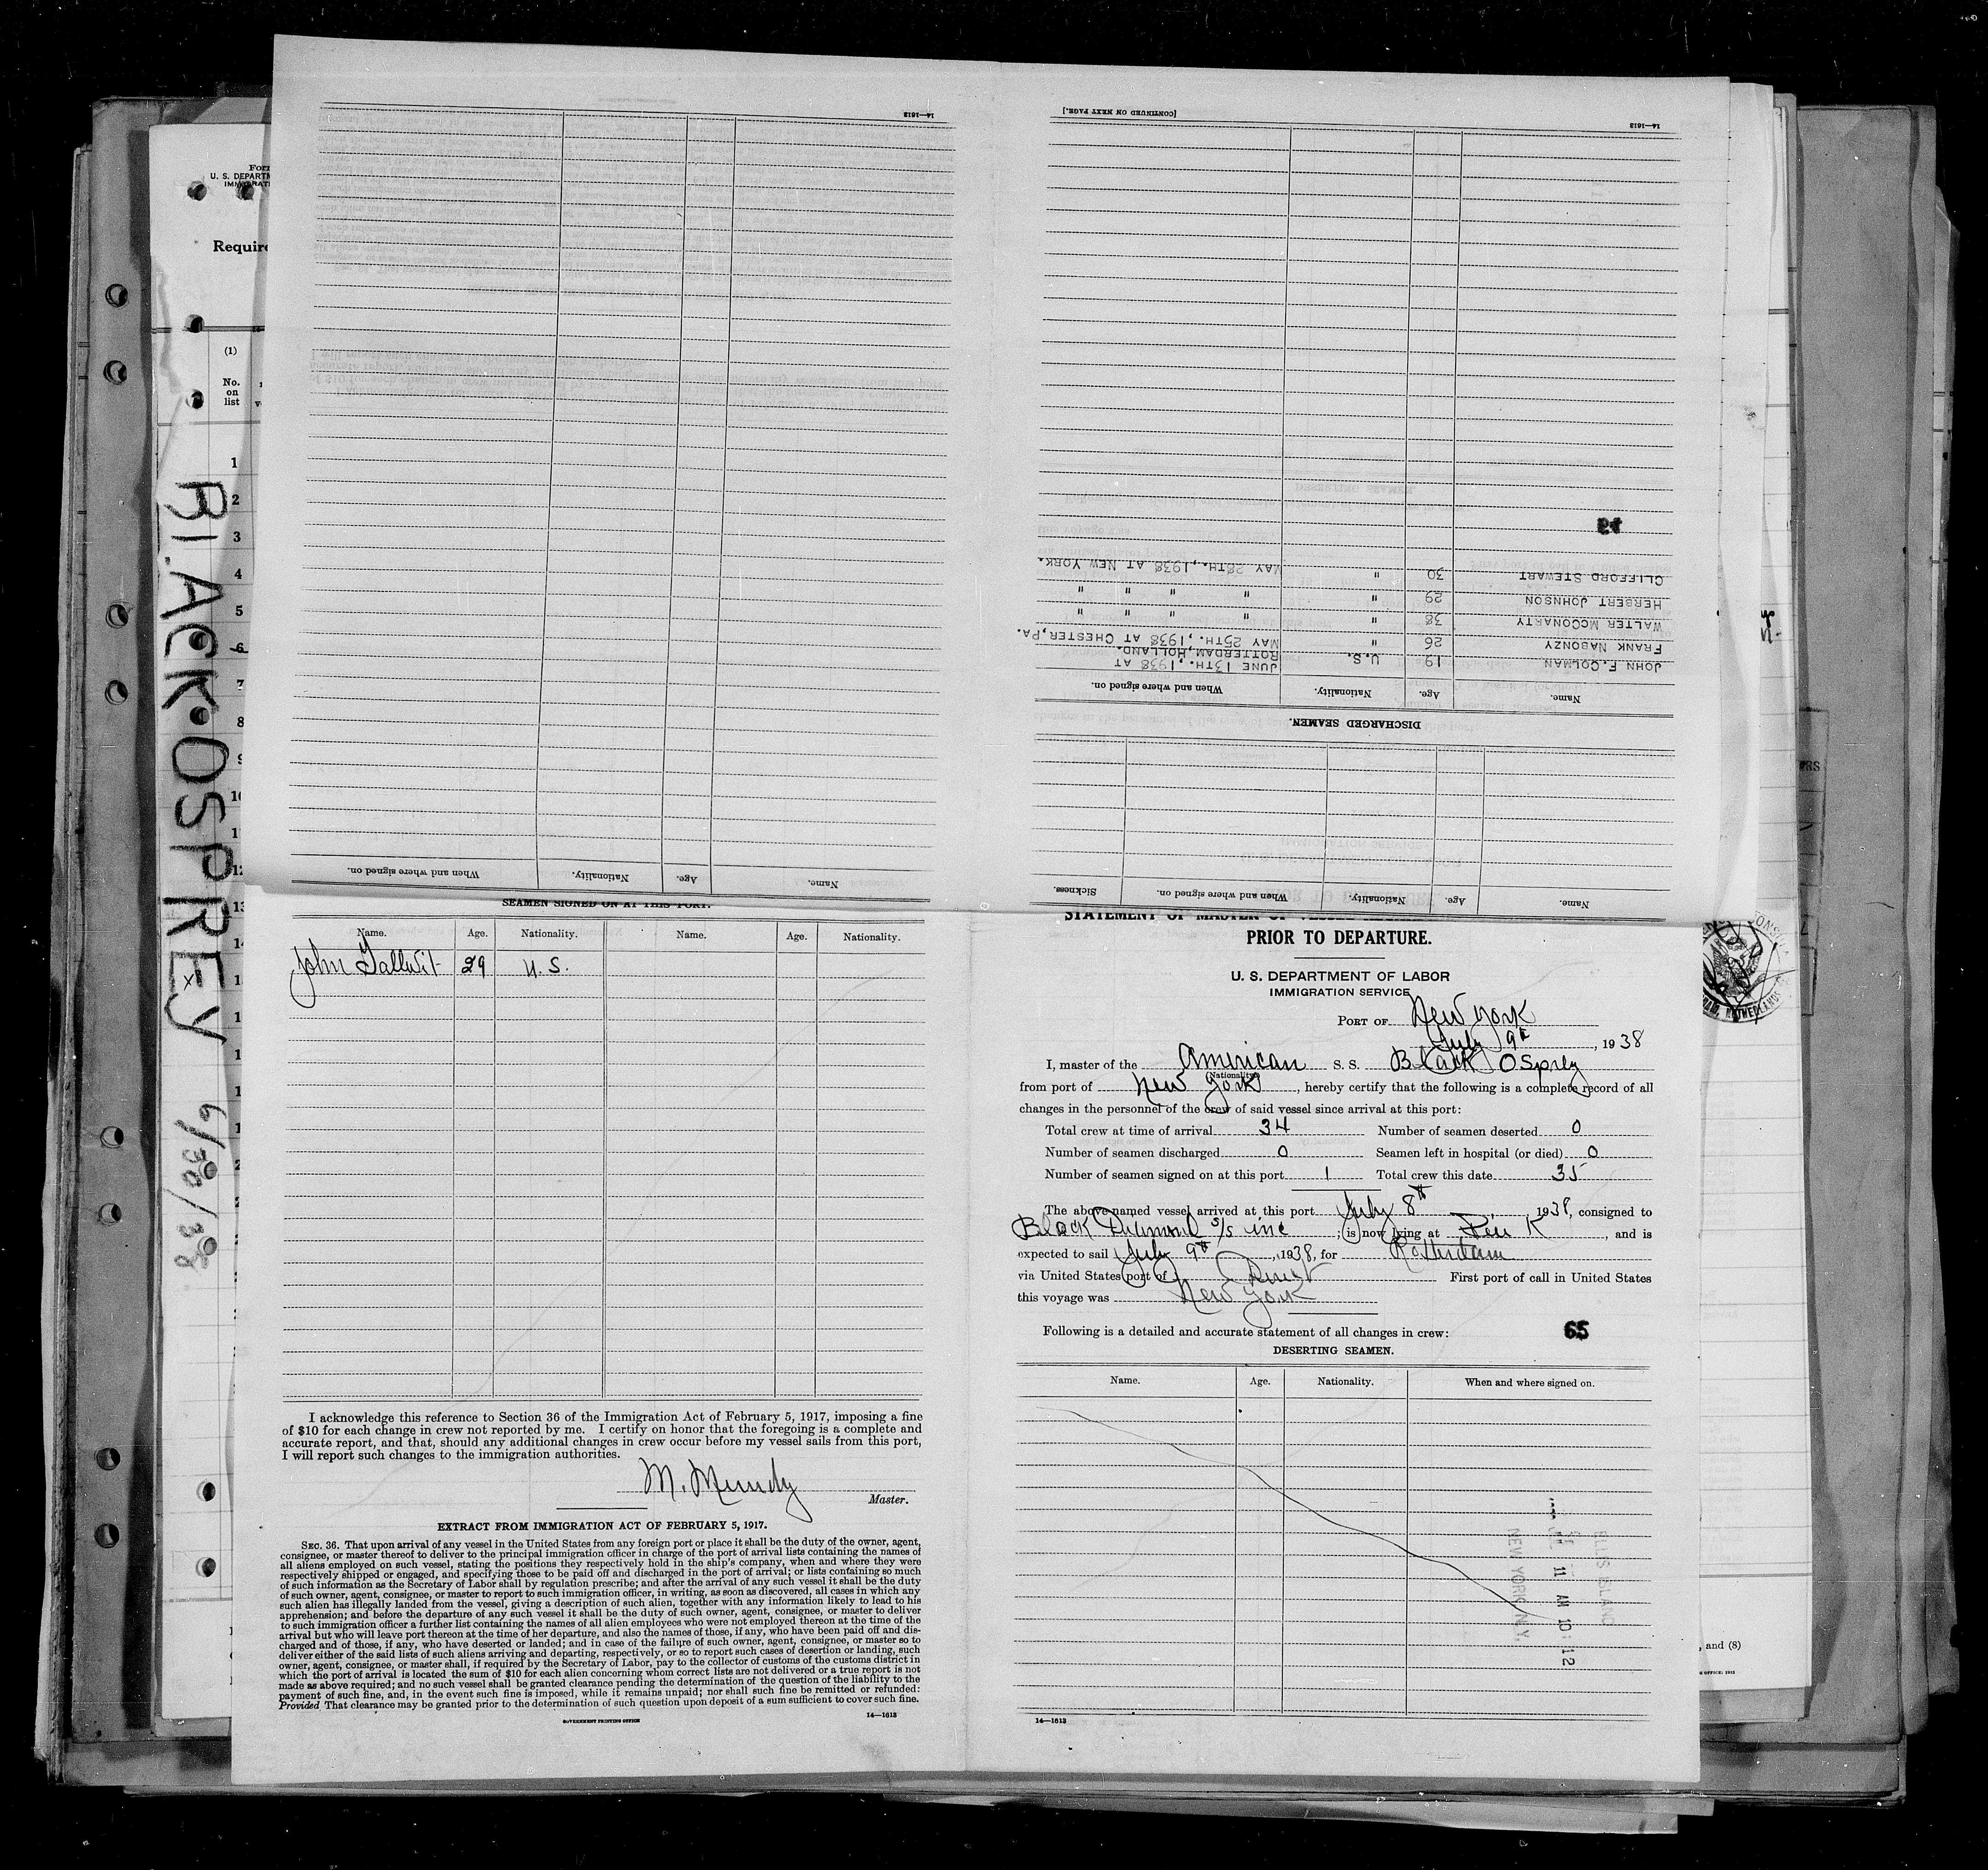 Form
U. S. DEPARTM
IMMIGRATI
Require
(1)
No.
on
list
1
2
3
4
5
6
7
8
9
10
BLACK OSPREY 6/30/38
14—1613
When and where signed on.
Nationality.
Age.
Name.
14—1613
[CONTINUED ON NEXT PAGE.]
Name.
Age.
Nationality.
When and where signed on.
Sickness.
DISCHARGED SEAMEN.
Name.
Age.
Nationality.
When and where signed on.
JOHN F.COLMAN 19 U.S. JUNE 13TH.,1938 AT
ROTTERDAM,HOLLAND.
FRANK NABONZY 26 " MAY 25TH.,1938 AT CHESTER,PA.
WALTER MCCONARTY 38 " " " " "
HERBERT JOHNSON 29 " " " " "
CLIFFORD STEWART 30 " MAY 28TH.,1938 AT NEW YORK.
SEAMEN SIGNED ON AT THIS PORT.
Name. Age. Nationality. Name. Age. Nationality.
John 29 U.S.
I acknowledge this reference to Section 36 of the Immigration Act of February 5, 1917, imposing a fine
of $10 for each change in crew not reported by me. I certify on honor that the foregoing is a complete and
accurate report, and that, should any additional changes in crew occur before my vessel sails from this port,
I will report such changes to the immigration authorities.
M. Mundy
Master.
EXTRACT FROM IMMIGRATION ACT OF FEBRUARY 5, 1917.
SEC. 36. That upon arrival of any vessel in the United States from any foreign port or place it shall be the duty of the owner, agent,
consignee, or master thereof to deliver to the principal immigration officer in charge of the port of arrival lists containing the names of
all aliens employed on such vessel, stating the positions they respectively hold in the ship's company, when and where they were
respectively shipped or engaged, and specifying those to be paid off and discharged in the port of arrival; or lists containing so much
of such information as the Secretary of Labor shall by regulation prescribe; and after the arrival of any such vessel it shall be the duty
of such owner, agent, consignee, or master to report to such immigration officer, in writing, as soon as discovered, all cases in which any
such alien has illegally landed from the vessel, giving a description of such alien, together with any information likely to lead to his
apprehension; and before the departure of any such vessel it shall be the duty of such owner, agent, consignee, or master to deliver
to such immigration officer a further list containing the names of all alien employees who were not employed thereon at the time of the
arrival but who will leave port thereon at the time of her departure, and also the names of those, if any, who have been paid off and dis-
charged and of those, if any, who have deserted or landed; and in case of the failure of such owner, agent, consignee, or master so to
deliver either of the said lists of such aliens arriving and departing, respectively, or so to report such cases of desertion or landing, such
owner, agent, consignee, or master shall, if required by the Secretary of Labor, pay to the collector of customs of the customs district in
which the port of arrival is located the sum of $10 for each alien concerning whom correct lists are not delivered or a true report is not
made as above required; and no such vessel shall be granted clearance pending the determination of the question of the liability to the
payment of such fine, and, in the event such fine is imposed, while it remains unpaid; nor shall such fine be remitted or refunded:
Provided That clearance may be granted prior to the determination of such question upon deposit of a sum sufficient to cover such fine.
GOVERNMENT PRINTING OFFICE
14—1613
STATEMENT OF MASTER OF VESSEL
PRIOR TO DEPARTURE.
U. S. DEPARTMENT OF LABOR
IMMIGRATION SERVICE
PORT OF New York
July 9th, 1938
I, master of the American S. S. Black Osprey
(Nationality)
from port of New York, hereby certify that the following is a complete record of all
changes in the personnel of the crew of said vessel since arrival at this port:
Total crew at time of arrival 34 Number of seamen deserted 0
Number of seamen discharged 0 Seamen left in hospital (or died) 0
Number of seamen signed on at this port 1 Total crew this date 35
The above-named vessel arrived at this port July 8th 1938, consigned to
Black Diamond s/s inc; is now lying at Pier K, and is
expected to sail July 9th, 1938, for Rotterdam
via United States port of Direct First port of call in United States
this voyage was New York
Following is a detailed and accurate statement of all changes in crew: 65
DESERTING SEAMEN.
Name. Age. Nationality. When and where signed on.
ELLIS ISLAND
11 AM 10:12
NEW YORK, N.Y.
14—1613
, and (8)